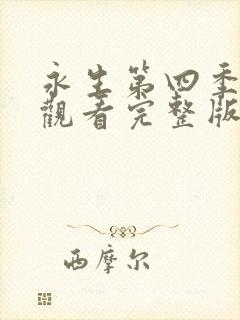 永生第四季
觀看完整版
西摩尔